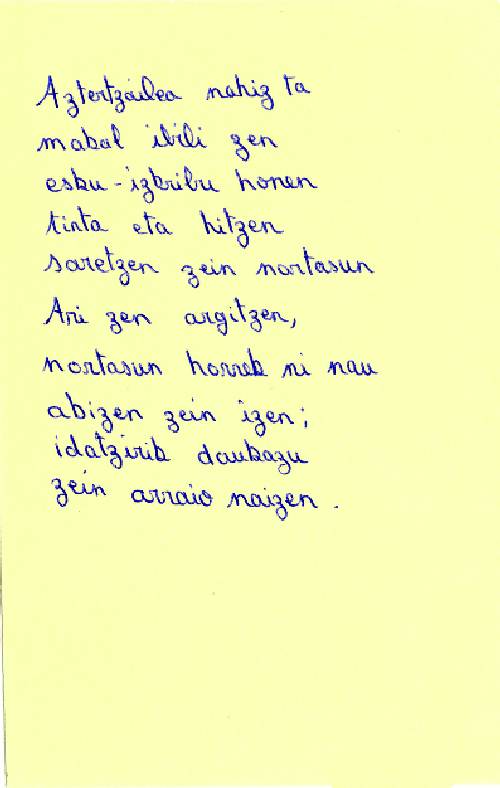 Aztertzailea nahiz ta
makal ibili zen
esku-izkribu honen
tinta eta hitzen
saretzen zein nortasun
Ari zen argitzen,
nortasun horrek ni nau
abizen zein izen;
idatzirik daukazu
zein arraio naizen.